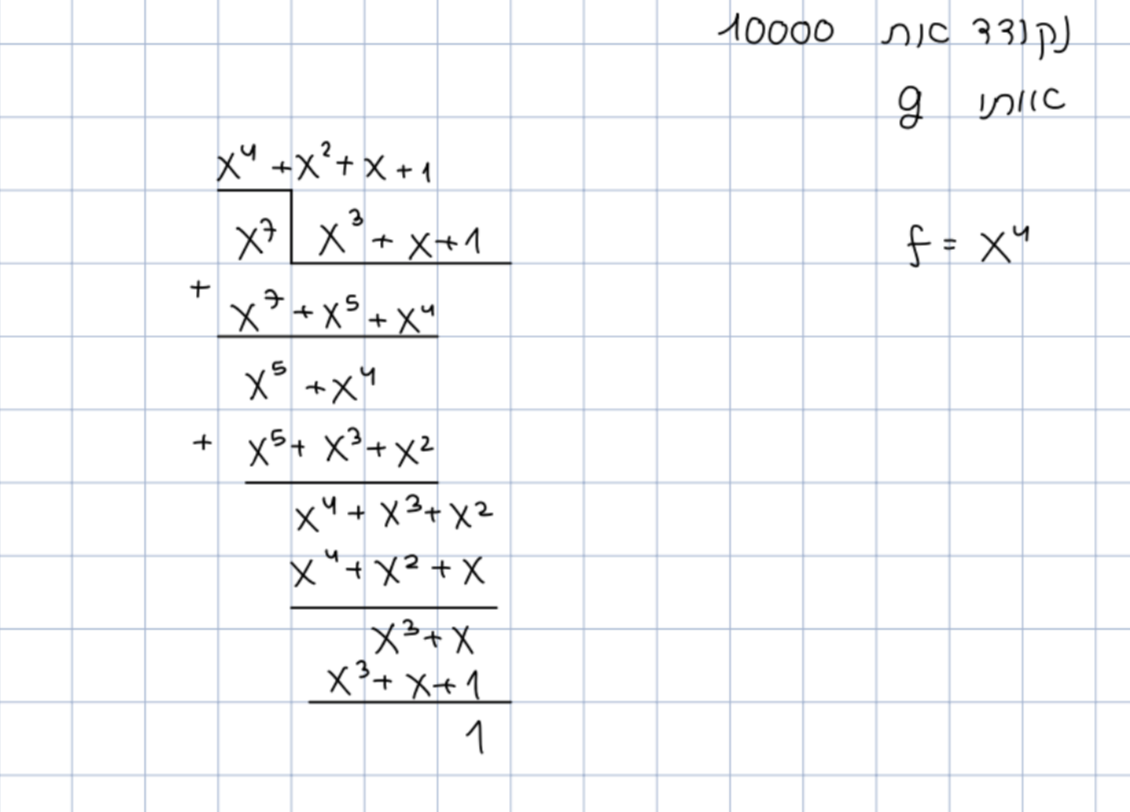 נקודד את 10000
אותו g
f = x⁴
x⁴ + x² + x + 1
x⁷ x³ + x + 1
+
x⁷ + x⁵ + x⁴
x⁵ + x⁴
+ x⁵ + x³ + x²
x⁴ + x³ + x²
x⁴ + x² + x
x³ + x
x³ + x + 1
1